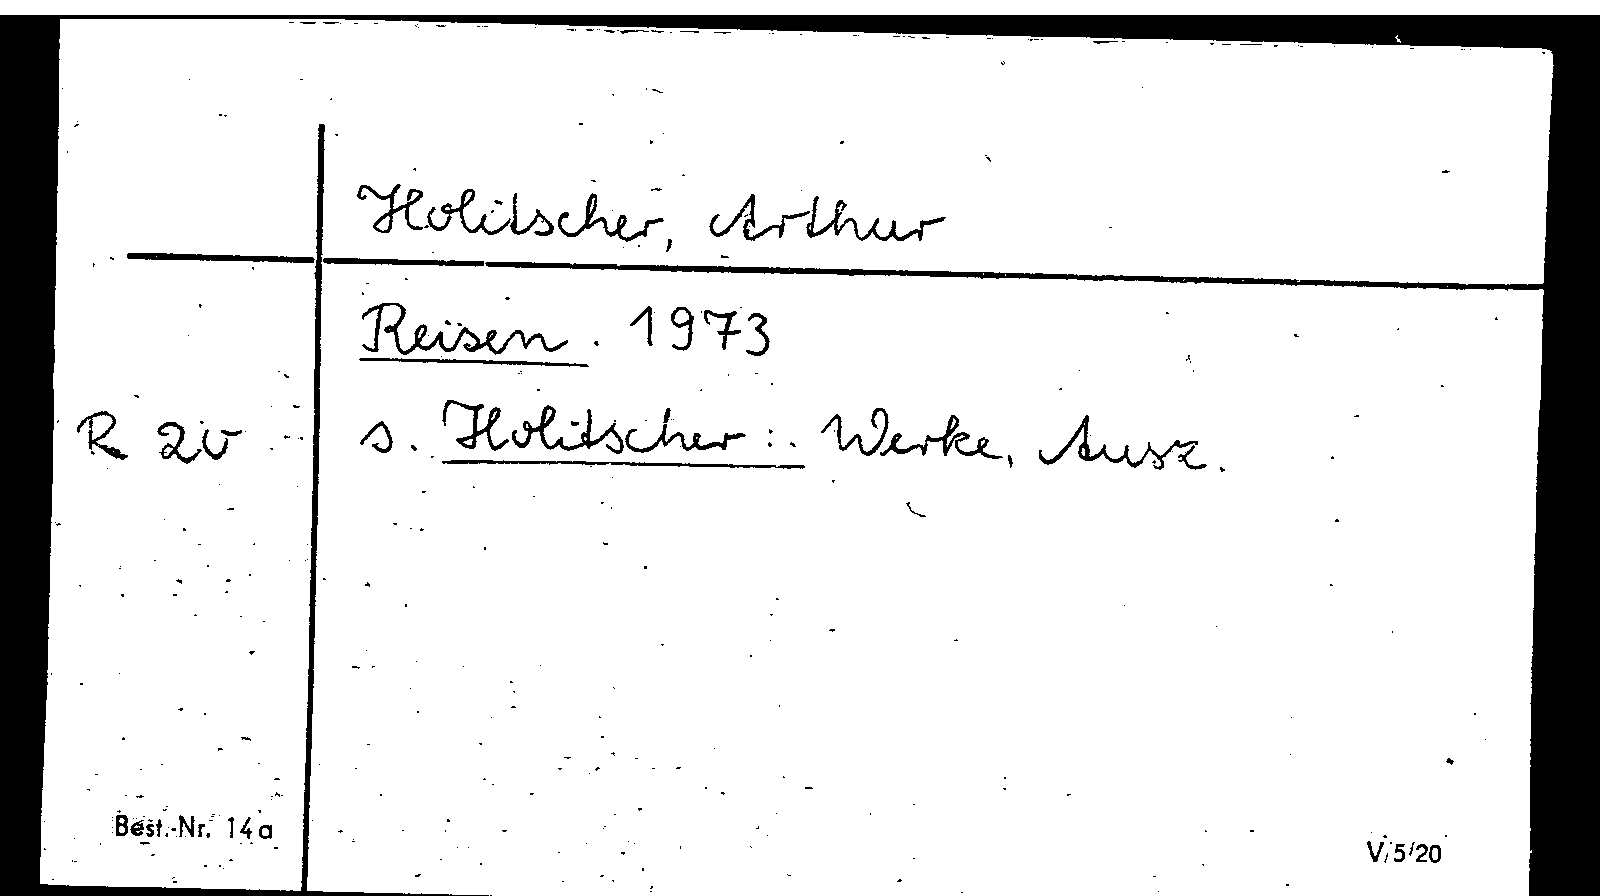 Holitscher, Arthur
Reisen. 1973
R 2v s. Holitscher: Werke, Ausz.
Best.-Nr. 14a
V/5/20